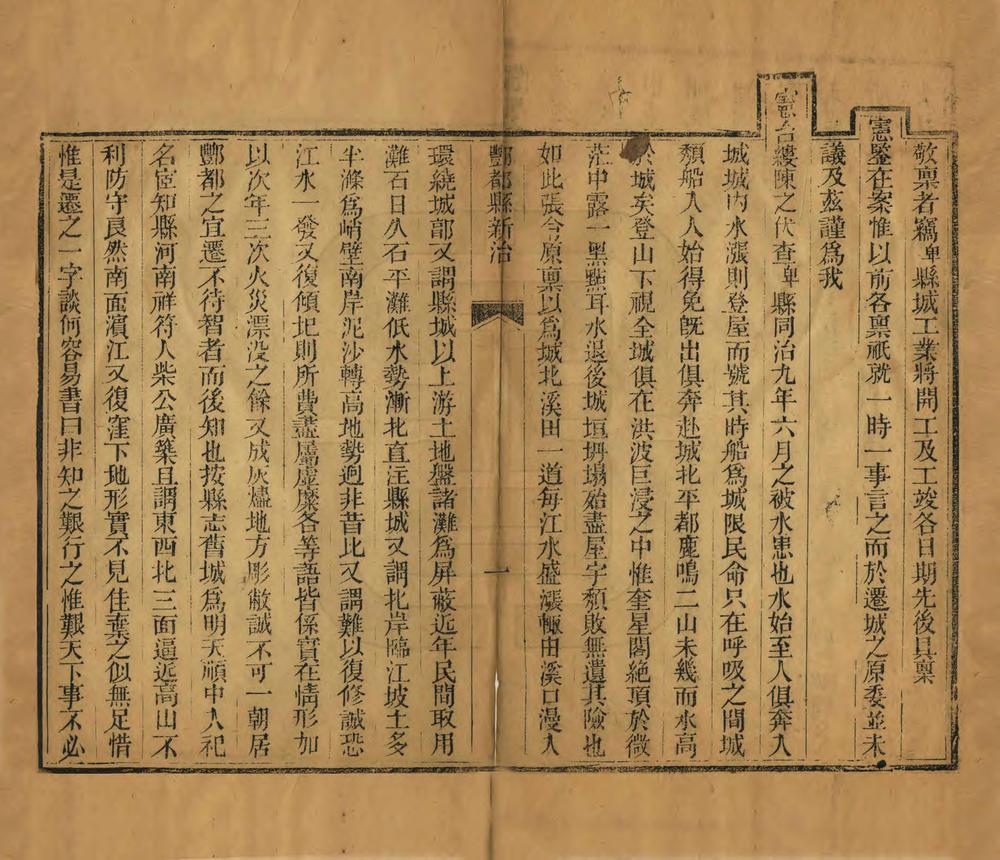 敬稟者竊卑縣城工業將開工及工竣各日期先後具稟
憲鑒在案惟以前各稟祇就一時一事言之而於遷城之原委並未
議及玆謹爲我
憲台縷陳之伏查卑縣同治九年六月之被水患也水始至人俱奔入
城城內水漲則登屋而號其時船爲城限民命只在呼吸之間城
頽船入人始得免旣出俱奔赴城北平都鹿鳴二山未幾而水高
於城矣登山下視全城俱在洪波巨浸之中惟奎星閣絶頂於微
茫中露一黑點耳水退後城垣坍塌殆盡屋宇頽敗無遺其險也
如此張令原稟以爲城北溪田一道每江水盛漲輒由溪口漫入
酆都縣新治
一
環繞城郭又謂縣城以上游土地盤諸灘爲屏蔽近年民間取用
灘石日久石平灘低水勢漸北直注縣城又謂北岸臨江坡土多
半滌爲峭壁南岸泥沙轉高地勢迥非昔比又謂難以復修誠恐
江水一發又復傾圮則所費盡屬虛糜各等語皆係實在情形加
以次年三次火災漂沒之餘又成灰燼地方彫敝誠不可一朝居
酆都之宜遷不待智者而後知也按縣志舊城爲明天順中入祀
名宦知縣河南祥符人柴公廣築且謂東西北三面逼近高山不
利防守良然南面濱江又復窪下地形實不見佳棄之似無足惜
惟是遷之一字談何容易書曰非知之艱行之惟艱天下事不必